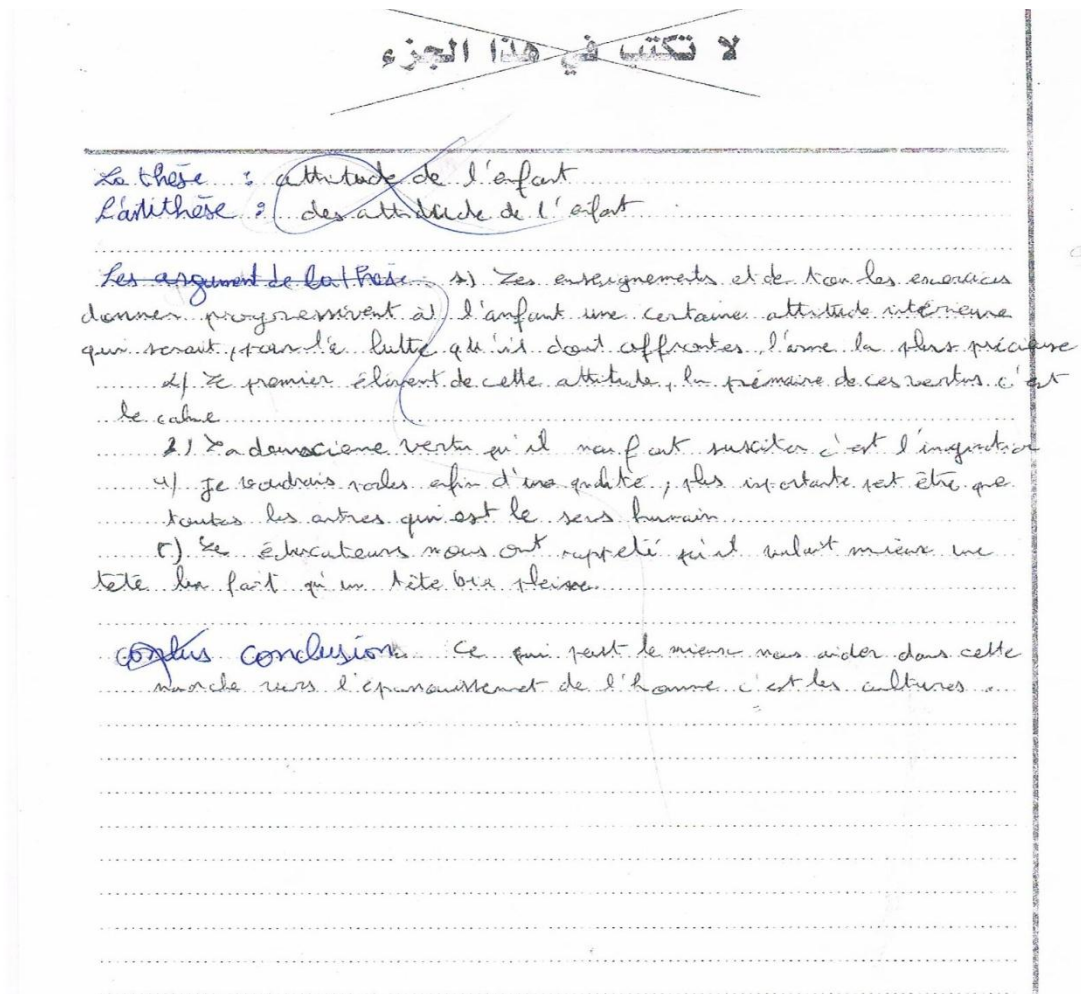 لا تكتب في هذا الجزء
La thèse : attitude de l'enfant
L'antithèse : des attitude de l'enfant
Les argument de la thèse 1) Les enseignements et de tou les exercices
donner progressivent à l'anfant une certaine attitude intérieure
qui serait, pour l'e lutte qu'il doit affrontes, l'arme la plus précieuse
2) Le premier élément de cette attitude, la prémaire de ces vertus c'est
le calme
3) La deuxcieme vertu qu'il nous faut susciter c'est l'imagination
4) Je voudrais enfin d'une qualité, plus importante peut être que
toutes les autres qui est le sens humain
5) Le éducateurs nous ont rappelé qu'il valait mieux une
tetê bien fait qu'un tête bien pleine.
conclus conclusion. Ce qui peut le mieux nous aider dans cette
marche vers l'épanouissement de l'homme c'est les cultures.